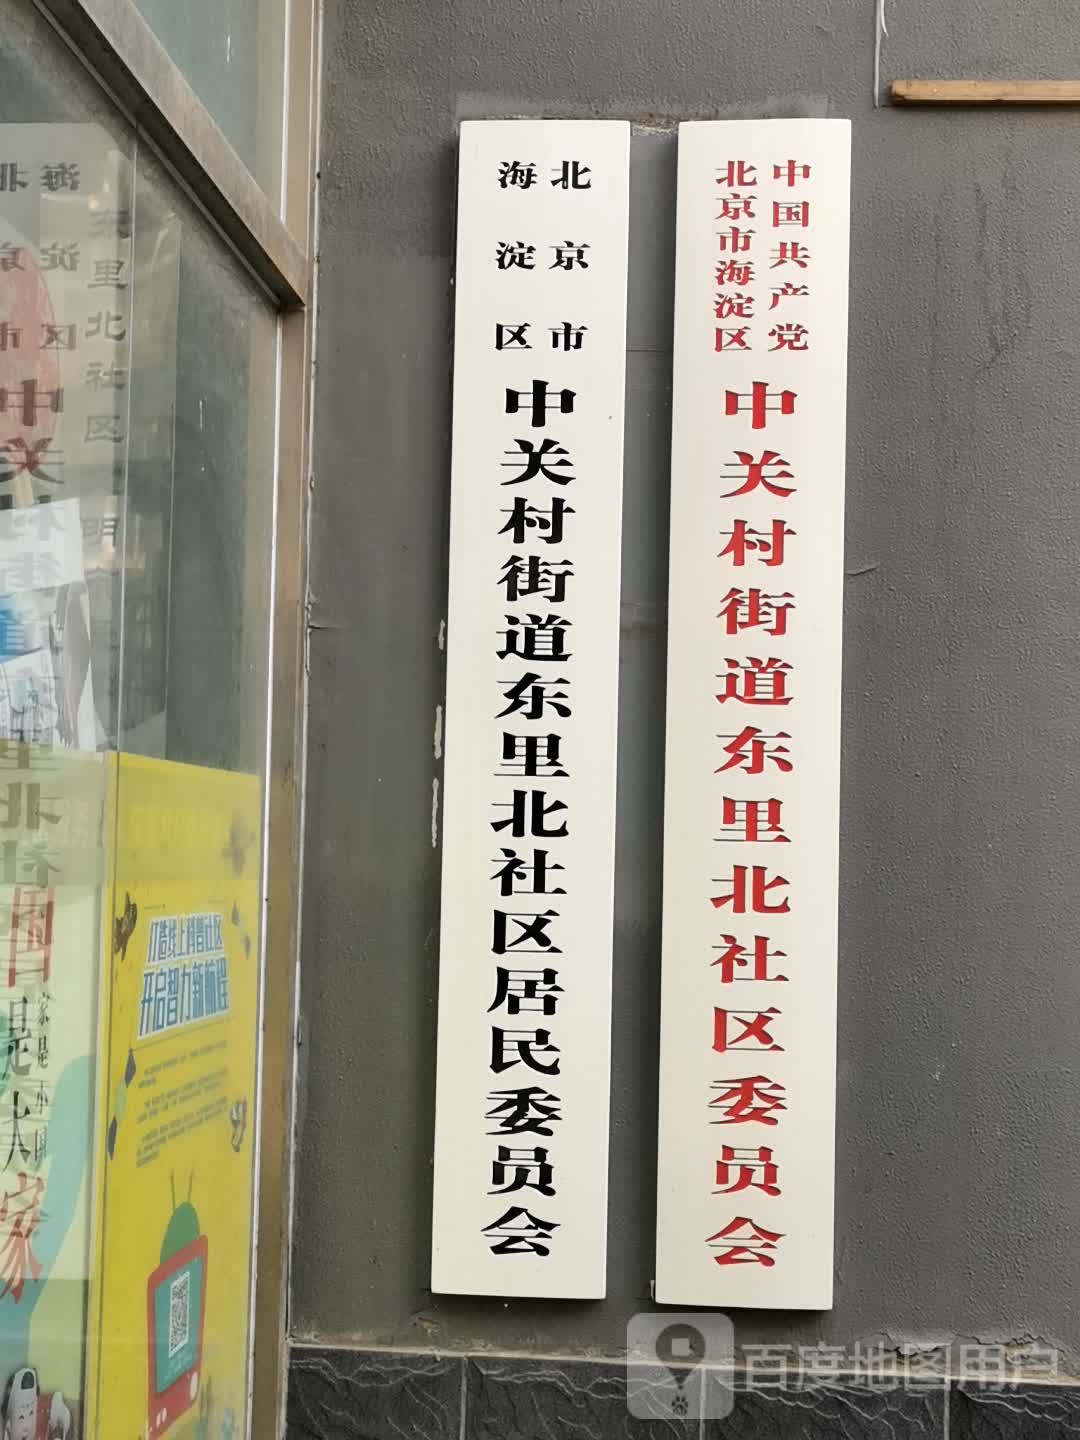 中国共产党
北京市海淀区
中关村街道东里北社区委员会
北京市
海淀区
中关村街道东里北社区居民委员会
打造线上科普社区
开启智力新航程
国是大家
家是小国
百度地图用户